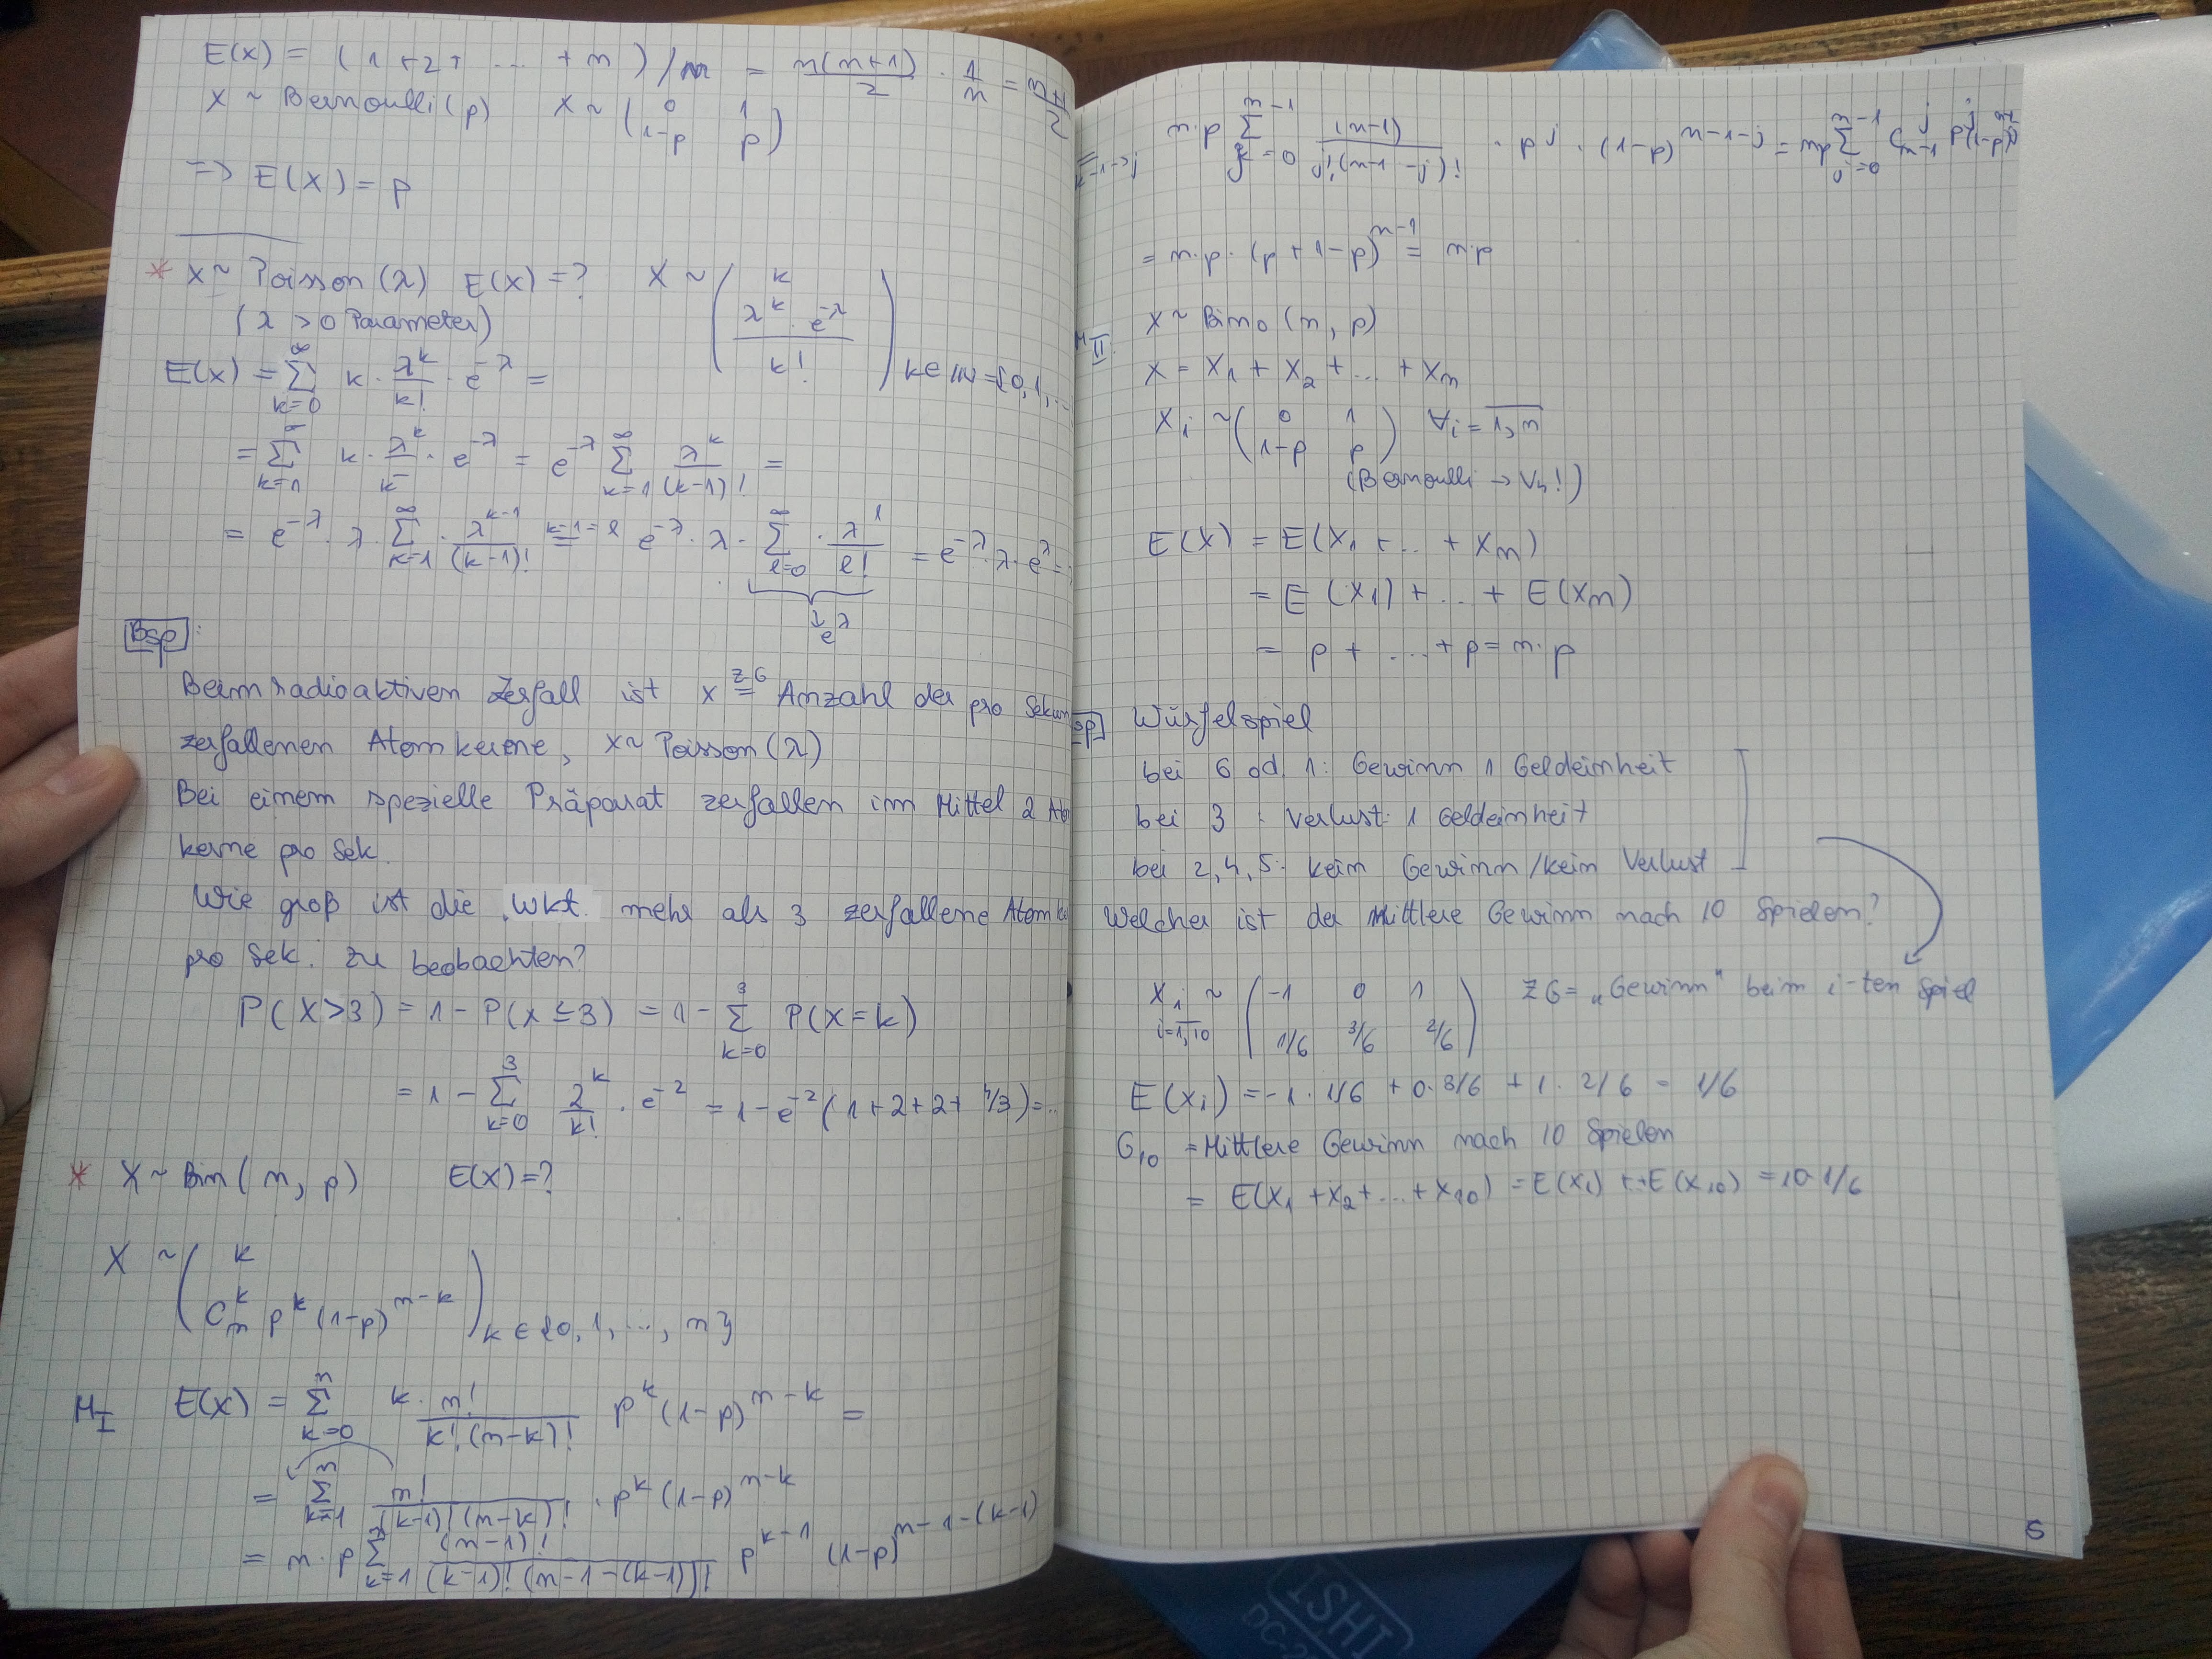 E(x) = (1+2+ ... + n)/n = n(n+1)/2 · 1/n = n+1/2
X ~ Bernoulli(p) X ~ (0 1
1-p p)
=> E(X) = p
* X ~ Poisson(λ) E(X)=? X ~ ( k
(λ > 0 Parameter) λ^k · e^-λ / k! ) k∈ℕ={0,1,...
E(x) = Σ_{k=0}^∞ k · λ^k/k! · e^-λ =
= Σ_{k=1}^∞ k · λ^k/k · e^-λ = e^-λ Σ_{k=1}^∞ λ^k/(k-1)! =
= e^-λ · λ · Σ_{k=1}^∞ · λ^{k-1}/(k-1)! =^{k-1=l} e^-λ · λ · Σ_{l=0}^∞ · λ^l/l! = e^-λ · λ · e^λ =
↓ e^λ
Bsp:
Beim radioaktiven Zerfall ist X =^{ZG} Anzahl der pro Sekun
zerfallenen Atomkerne, X ~ Poisson(λ)
Bei einem spezielle Präparat zerfallen im Mittel 2 Ato
kerne pro Sek.
Wie groß ist die Wkt. mehr als 3 zerfallene Atomke
pro Sek. zu beobachten?
P(X>3) = 1 - P(X≤3) = 1 - Σ_{k=0}^3 P(X=k)
= 1 - Σ_{k=0}^3 2^k/k! · e^-2 = 1 - e^-2 (1+2+2+ 4/3) = ...
* X ~ Bin(n, p) E(X)=?
X ~ ( k
C_n^k p^k (1-p)^{n-k} ) k ∈ {0, 1, ..., n}
M_I E(X) = Σ_{k=0}^n k · n!/k!·(n-k)! p^k (1-p)^{n-k} =
= Σ_{k=1}^n n!/(k-1)!(n-k)! · p^k (1-p)^{n-k}
= n·p Σ_{k=1}^n (n-1)!/(k-1)!(n-1-(k-1))! p^{k-1} (1-p)^{n-1-(k-1)}
=_{k-1→j} n·p Σ_{j=0}^{n-1} (n-1)/j!(n-1-j)! · p^j · (1-p)^{n-1-j} = np Σ_{j=0}^{n-1} C_{n-1}^j p^j (1-p)
= n·p · (p+1-p)^{n-1} = n·p
M_II X ~ Bino(n, p)
X = X_1 + X_2 + ... + X_n
X_i ~ (0 1
1-p p) ∀i = 1,n
(Bernoulli → V_4!)
E(X) = E(X_1 + ... + X_n)
= E(X_1) + ... + E(X_n)
= p + ... + p = n·p
sp Würfelspiel
bei 6 od 1: Gewinn 1 Geldeinheit
bei 3 : Verlust: 1 Geldeinheit
bei 2,4,5: kein Gewinn/kein Verlust
Welcher ist der Mittlere Gewinn nach 10 Spielen?
X_i ~ ( -1 0 1
i=1,10 1/6 3/6 2/6 ) ZG= „Gewinn" beim i-ten Spiel
E(X_i) = -1 · 1/6 + 0·3/6 + 1 · 2/6 = 1/6
G_10 = Mittlere Gewinn nach 10 Spielen
= E(X_1 + X_2 + ... + X_10) = E(X_1) + ..+ E(X_10) = 10·1/6
5
ISHI
DC-2